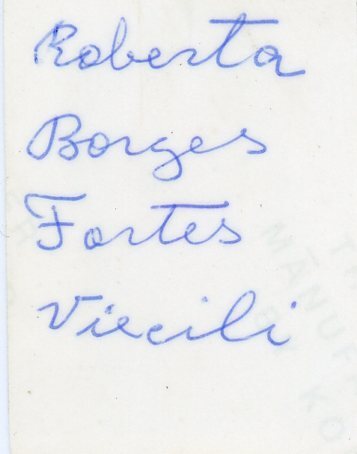 Roberta
Borges
Fortes
Viecili